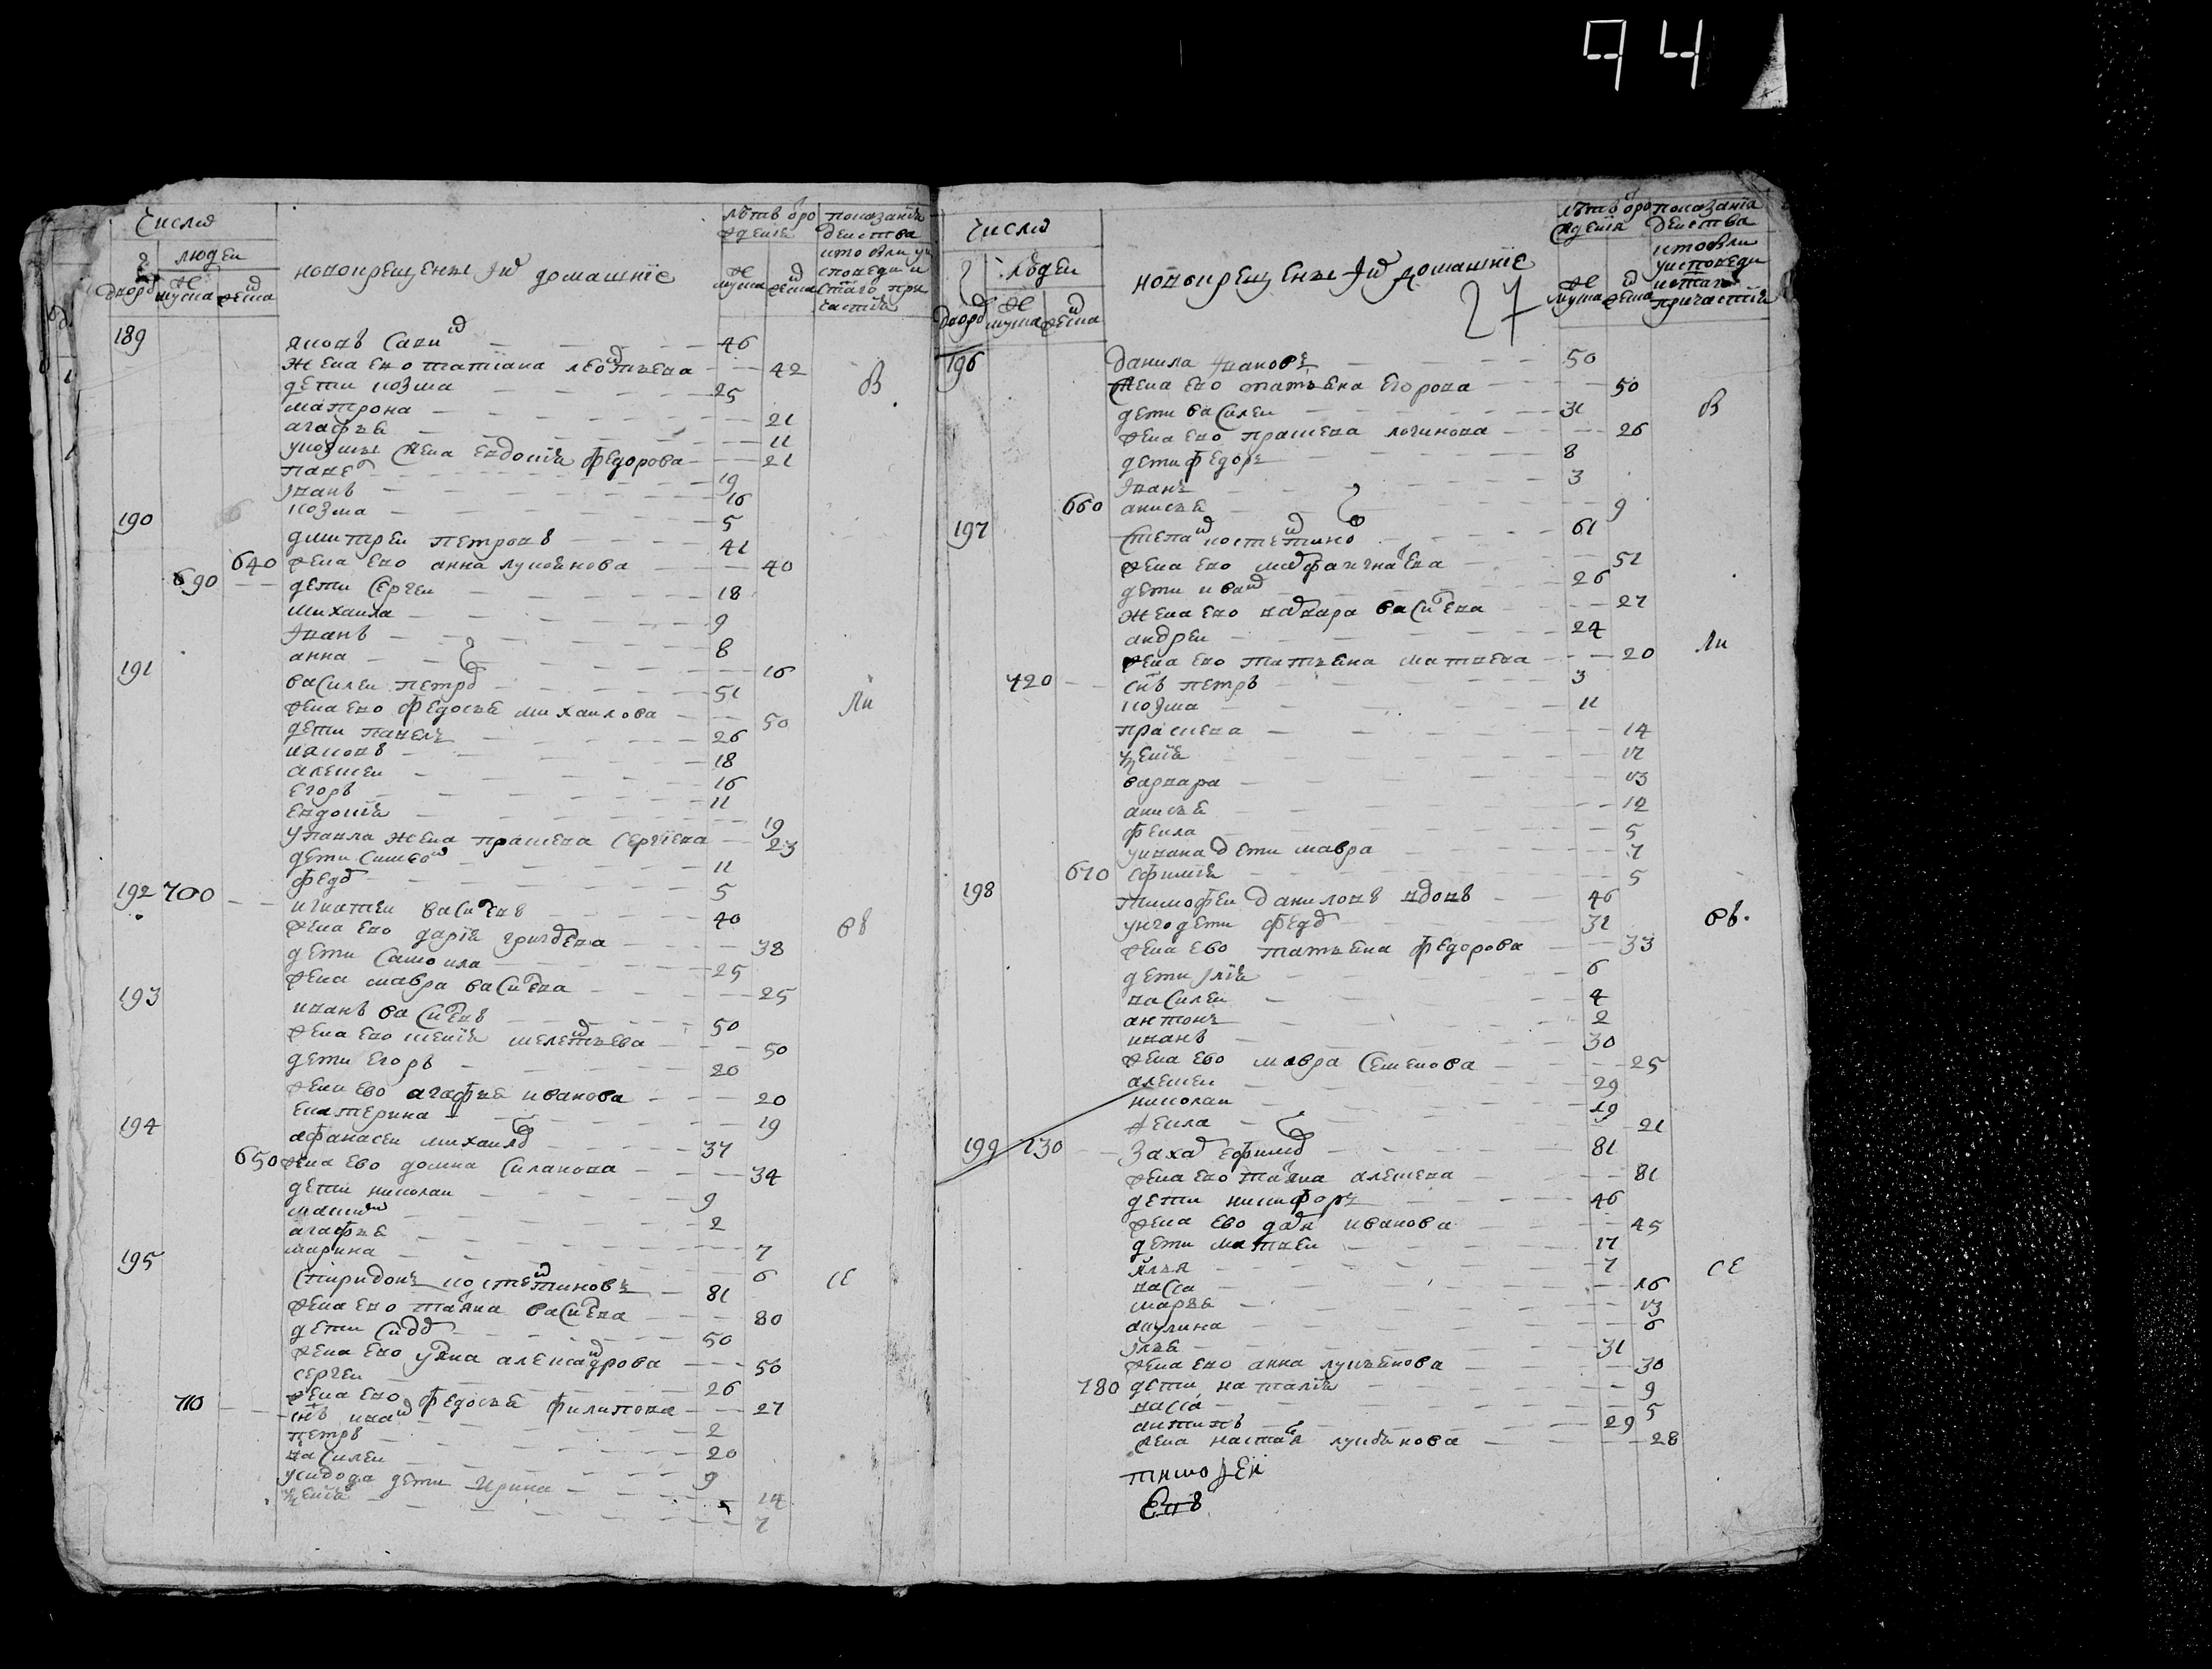 94
Числа
людеи
дворов
мужеска
женска
новокрещены и их домашние
лета от рождения
мужеска
женска
показание действа кто были у исповеди и святаго причастия
189
яков Савин 46
жена ево татиана леонтьева 42
дети козма 25
В
матрона 21
агафья 11
у козмы жена евдокия федорова 21
павел 19
иванъ 16
козма 5
190
дмитреи петровъ 41
640 жена ево анна лукоянова 40
690 дети Сергеи 18
михаила 9
иванъ 8
анна 16
191
василеи петров 51
жена ево федосья михаилова 50
ли
дети павелъ 26
иаковъ 18
алексеи 16
егоръ 11
евдокия 19
у павла жена прасковья Сергиева 23
дети Симеон 11
федор 5
192 700
игнатеи васильевъ 40
жена ево дария григорьева 38
вв
дети Самоила 25
жена мавра васильева 25
193
иванъ васильевъ 50
жена ево ксения мелентьева 50
дети егоръ 20
жена ево агафья иванова 20
екатерина 19
194
афанасеи михаилов 37
650 жена ево домна Силанова 34
дети николаи 9
максим 2
агафья 7
марина 6
195
Спиридонъ костентиновъ 81
се
жена ево татьяна васильева 80
дети Сидор 50
жена ево ульяна александрова 50
сергеи 26
710 жена ево федосья филипова 27
сынъ иван 2
петръ 20
василеи 9
у сидора дети ирина 14
ксения 7
Числа
людеи
дворов
мужеска
женска
новокрещены и их домашние
27
196
данила ивановъ 50
жена ево татьяна егорова 50
дети василеи 31
В
жена ево прасковья логинова 26
дети федоръ 8
иванъ 3
660 анисья 9
197
Степан костентинов 61
жена ево марфа игнатьева 51
дети иван 26
жена ево варвара васильева 27
андреи 24
жена ево татьяна матвеева 20
ли
720 сынъ петръ 3
козма 11
прасковья 14
ксения
варвара 13
анисья 12
фекла 5
у ивана дети мавра 7
670 ефимия 5
198
тимофеи даниловъ вдовъ 46
у него дети федор 31
вв
жена ево татьяна федорова 33
дети илия 6
василеи 4
антонъ 2
иванъ 30
жена ево мавра Семенова 25
алексеи 29
николаи 19
фекла 21
199 730
Захар ефимов 81
жена ево татьяна алексеева 81
дети никифоръ 46
жена ево дарья иванова 45
дети матвеи 17
илья 7
се
васса 16
марья 13
акулина 6
илья 31
жена ево анна лукьянова 30
780 дети наталия 9
васса 5
антипъ 29
жена настасья лукоянова 28